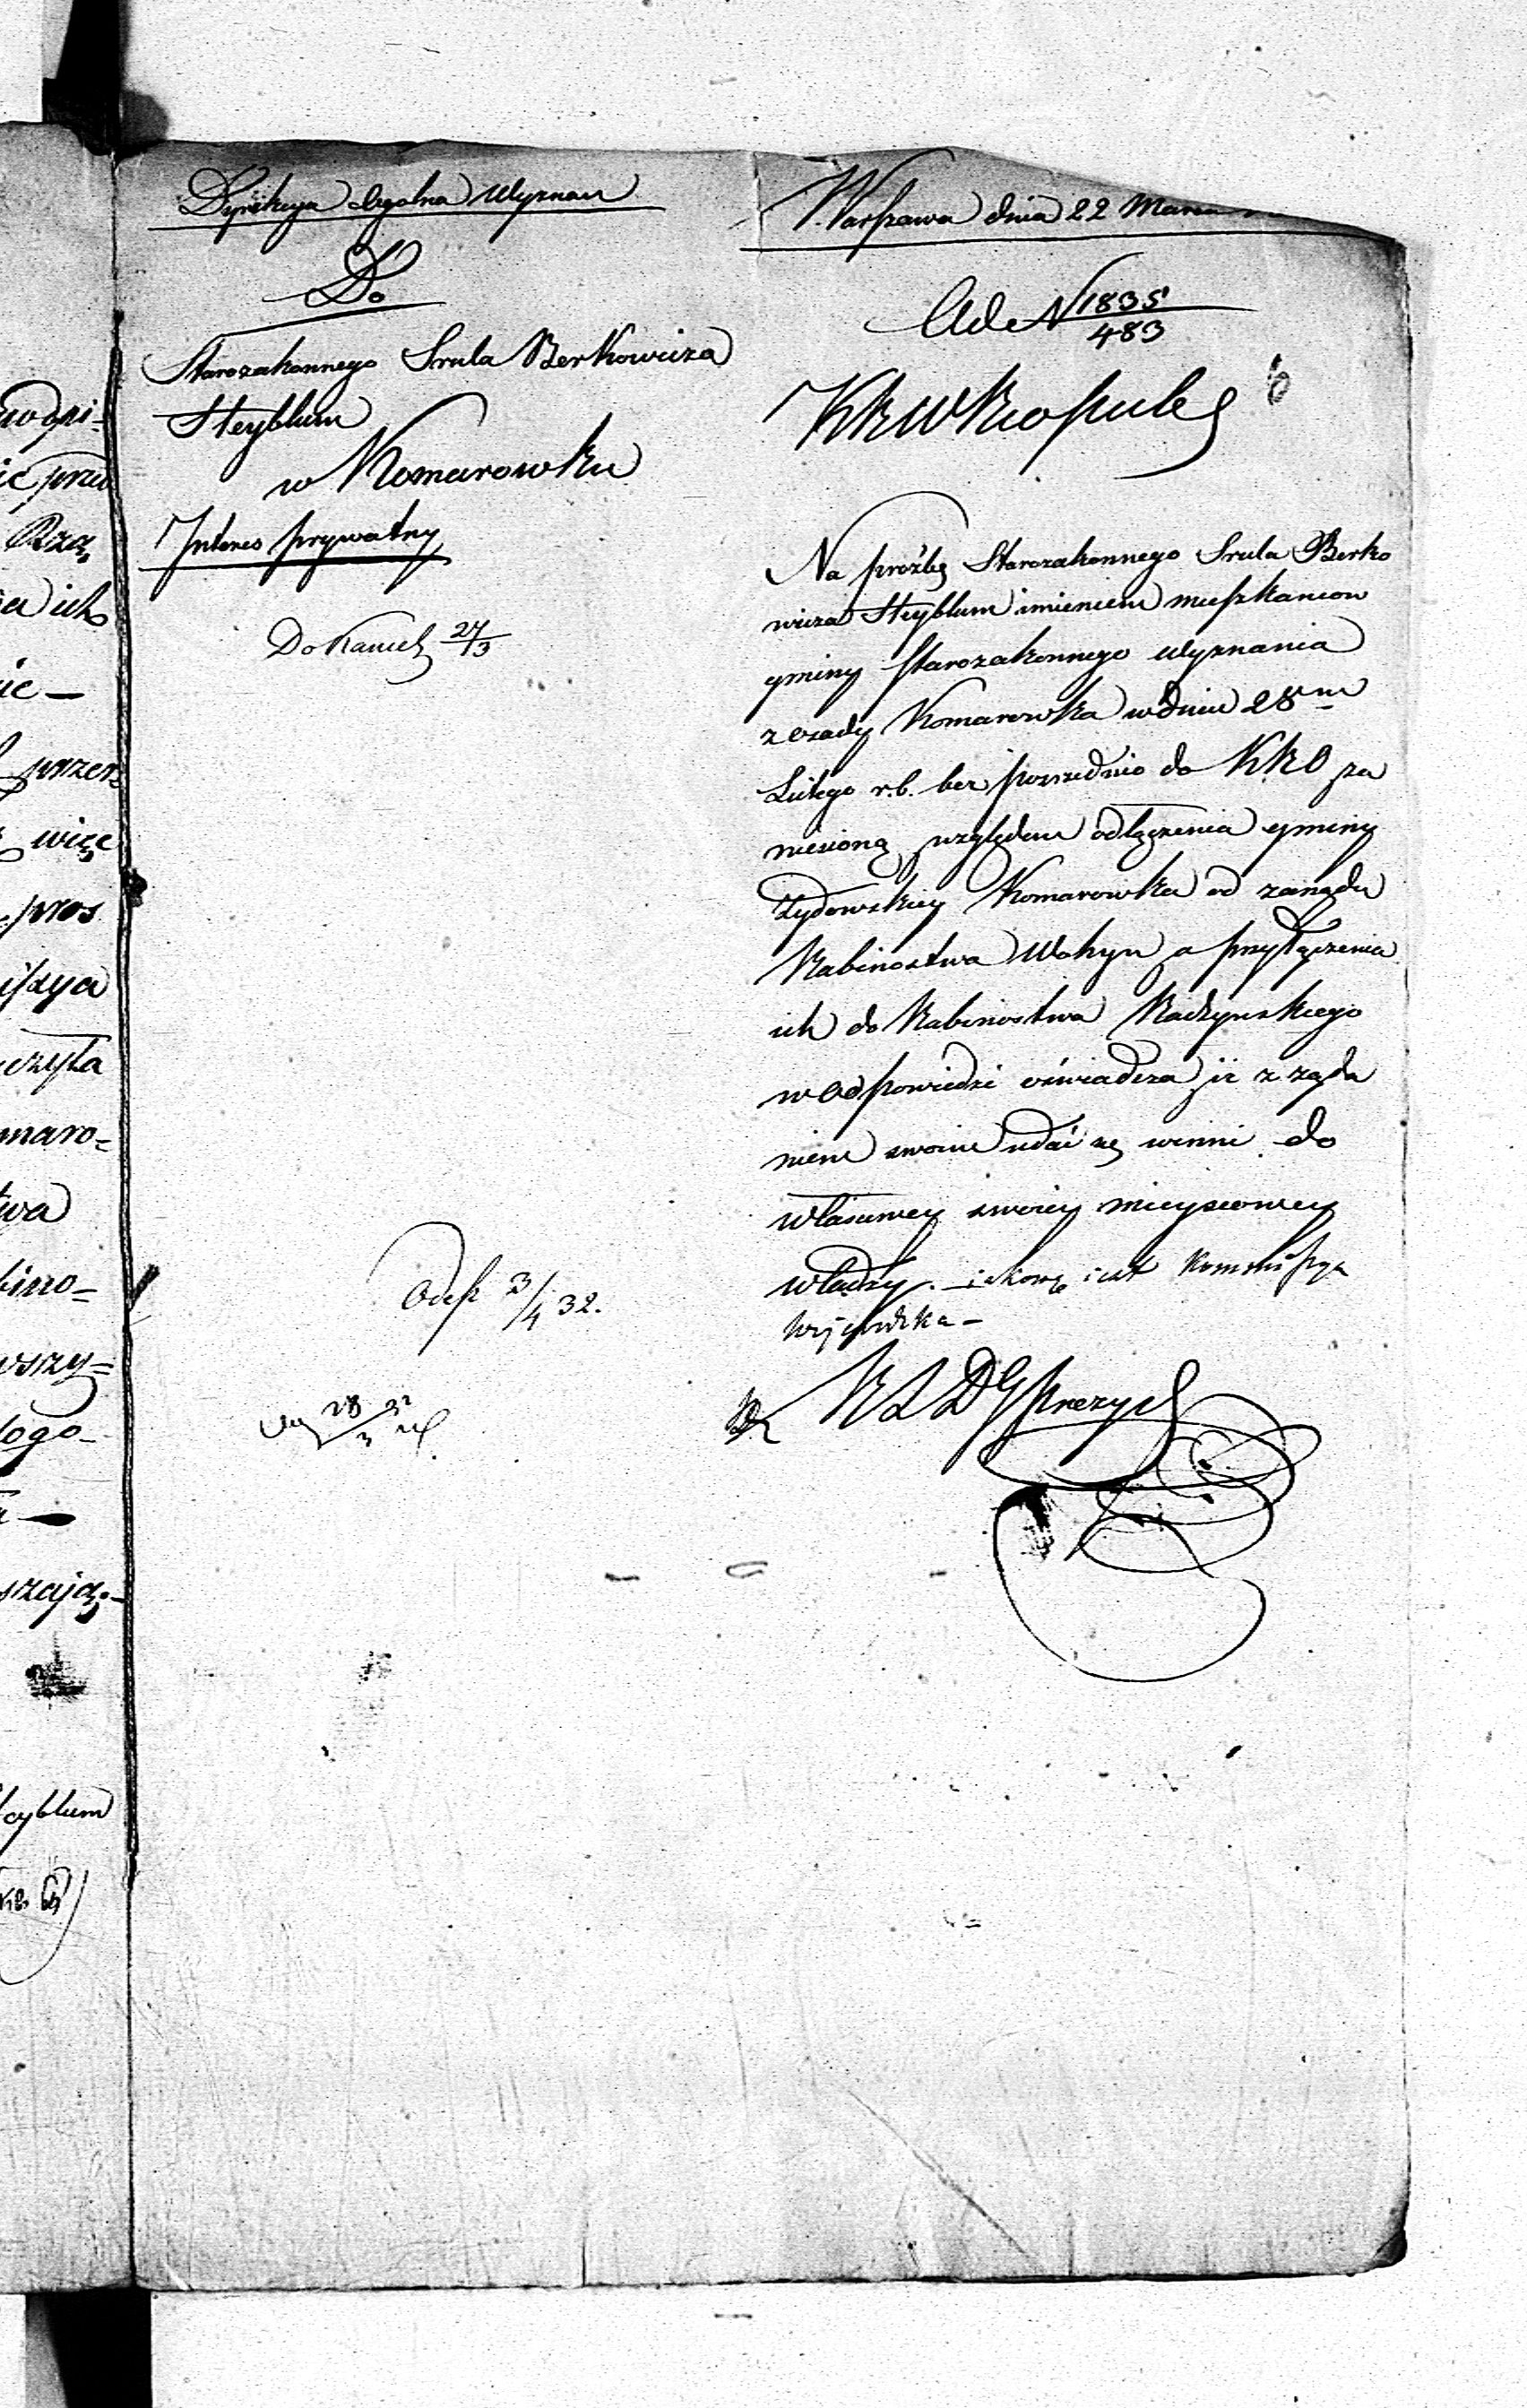 Dyrekcya Ogolna Wyznań
Do
Starozakonnego Srula Berkowicza
Steyblum
w Komarowku
Interes prywatny
Do Kancel 27/3
Odesz 3/4 32.
28 32
3
Warszawa dnia 22 Marca
Ad N 1835
483
6
KRWR i O publ
Na proźbę Starozakonnego Srula Berko
wicza Steyblum imieniem mieszkancow
gminy Starozakonnego Wyznania
z osady Komarowka w dniu 28m
Lutego r.b. bezposrzednio do KRO za
niesioną względem odłączenia gminy
Żydowskiey Komarowka od zarządu
Rabinostwa Wohyn a przyłączenia
ich do Rabinostwa Radzynskiego
w odpowiedzi oświadcza iż z żąda
niem swoim udać się winni do
własciwey swoiey mieyscowey
władzy. iakową iest Kommissya
Wojewdzka –
R S D G Prezyd
wodpi=
ie przed
Rzą
ich
ie –
przez
więc
pros
issya
czyła
maro=
twa
bino=
wszy=
łogo-
szając-
teyblum